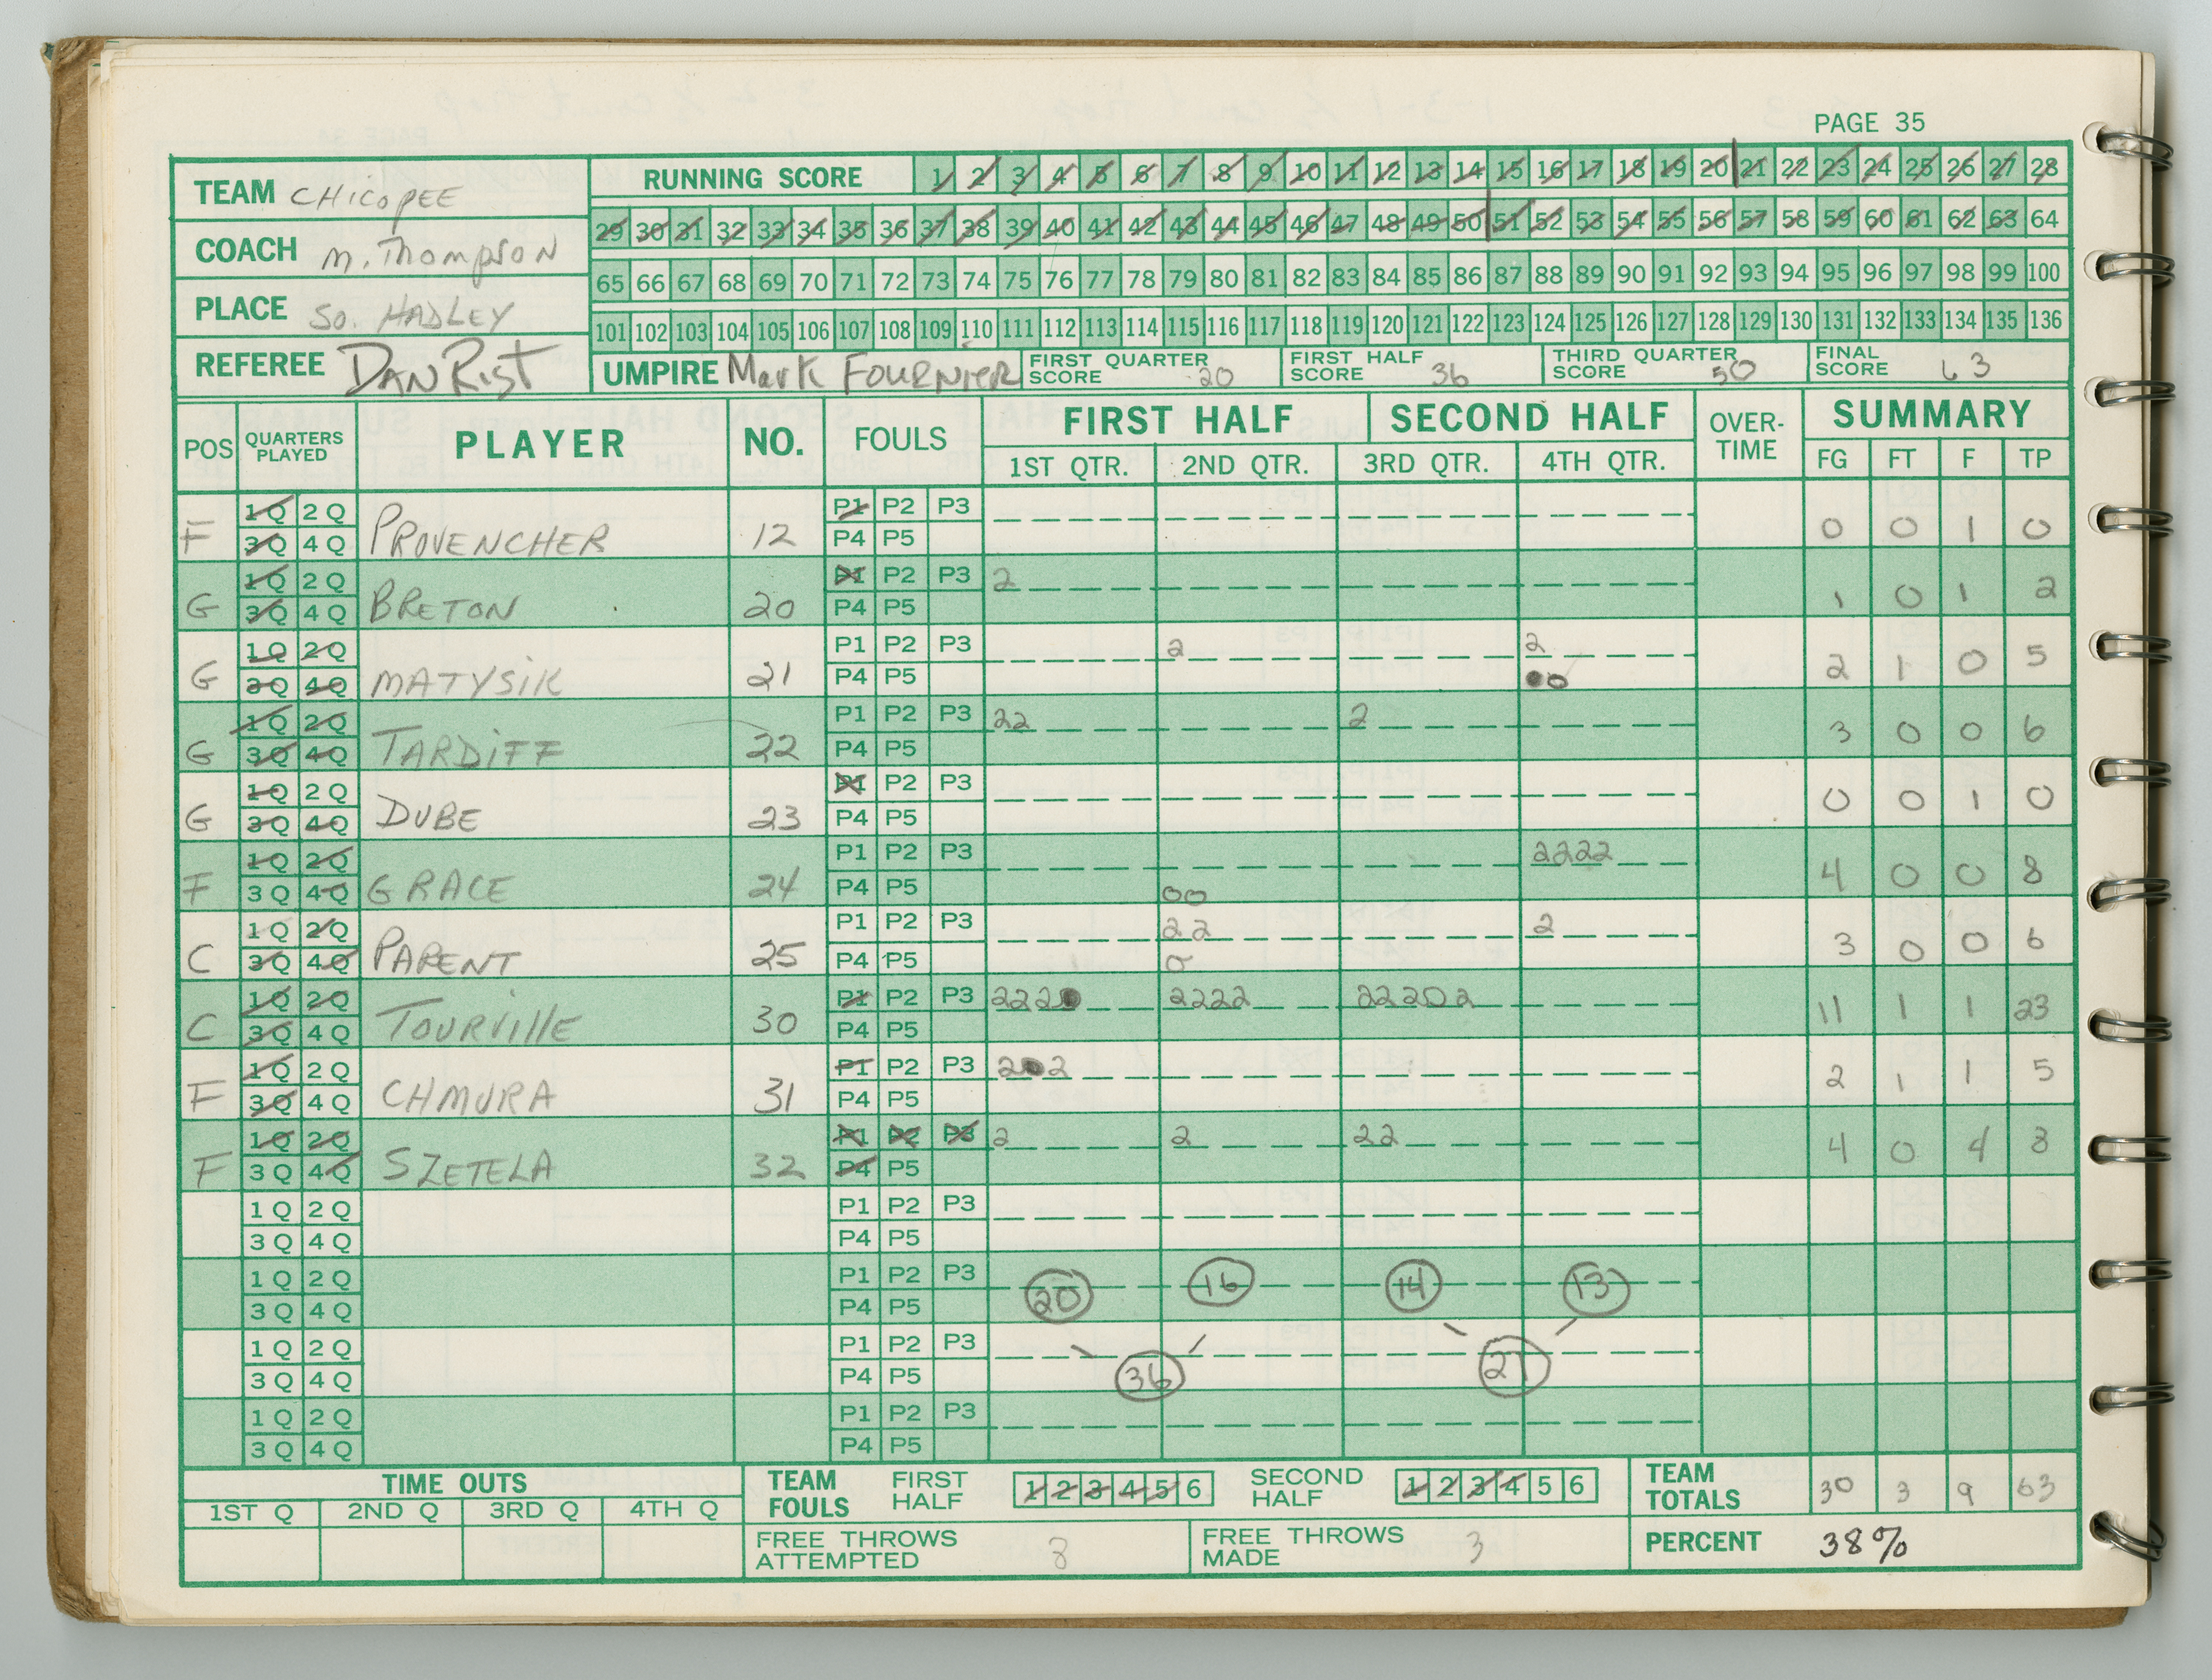 PAGE 35
TEAM CHICOPEE
COACH M. THOMPSON
PLACE SO. HADLEY
REFEREE DAN RIST
RUNNING SCORE 1 2 3 4 5 6 7 8 9 10 11 12 13 14 15 16 17 18 19 20 21 22 23 24 25 26 27 28
29 30 31 32 33 34 35 36 37 38 39 40 41 42 43 44 45 46 47 48 49 50 51 52 53 54 55 56 57 58 59 60 61 62 63 64
65 66 67 68 69 70 71 72 73 74 75 76 77 78 79 80 81 82 83 84 85 86 87 88 89 90 91 92 93 94 95 96 97 98 99 100
101 102 103 104 105 106 107 108 109 110 111 112 113 114 115 116 117 118 119 120 121 122 123 124 125 126 127 128 129 130 131 132 133 134 135 136
UMPIRE Mark FOURNIER FIRST QUARTER SCORE 20 FIRST HALF SCORE 36 THIRD QUARTER SCORE 50 FINAL SCORE 63
POS QUARTERS PLAYED PLAYER NO. FOULS FIRST HALF SECOND HALF OVER-TIME SUMMARY
1ST QTR. 2ND QTR. 3RD QTR. 4TH QTR. FG FT F TP
1Q 2Q P1 P2 P3
F 3Q 4Q PROVENCHER 12 P4 P5 0 0 1 0
1Q 2Q P1 P2 P3 2
G 3Q 4Q BRETON 20 P4 P5 1 0 1 2
1Q 2Q P1 P2 P3 2 2
G 3Q 4Q MATYSIK 21 P4 P5 2 1 0 5
1Q 2Q P1 P2 P3 22 2
G 3Q 4Q TARDIFF 22 P4 P5 3 0 0 6
1Q 2Q P1 P2 P3
G 3Q 4Q DUBE 23 P4 P5 0 0 1 0
1Q 2Q P1 P2 P3 2222
F 3Q 4Q GRACE 24 P4 P5 00 4 0 0 8
1Q 2Q P1 P2 P3 22 2
C 3Q 4Q PARENT 25 P4 P5 0 3 0 0 6
1Q 2Q P1 P2 P3 222 2222 22202
C 3Q 4Q TOURVILLE 30 P4 P5 11 1 1 23
1Q 2Q P1 P2 P3 2 2
F 3Q 4Q CHMURA 31 P4 P5 2 1 1 5
1Q 2Q P1 P2 P3 2 2 22
F 3Q 4Q SZETELA 32 P4 P5 4 0 4 8
1Q 2Q P1 P2 P3
3Q 4Q P4 P5
1Q 2Q P1 P2 P3 20 16 14 13
3Q 4Q P4 P5
1Q 2Q P1 P2 P3
3Q 4Q P4 P5 36 27
1Q 2Q P1 P2 P3
3Q 4Q P4 P5
TIME OUTS TEAM FOULS FIRST HALF 1 2 3 4 5 6 SECOND HALF 1 2 3 4 5 6 TEAM TOTALS 30 3 9 63
1ST Q 2ND Q 3RD Q 4TH Q
FREE THROWS ATTEMPTED 8 FREE THROWS MADE 3 PERCENT 38%